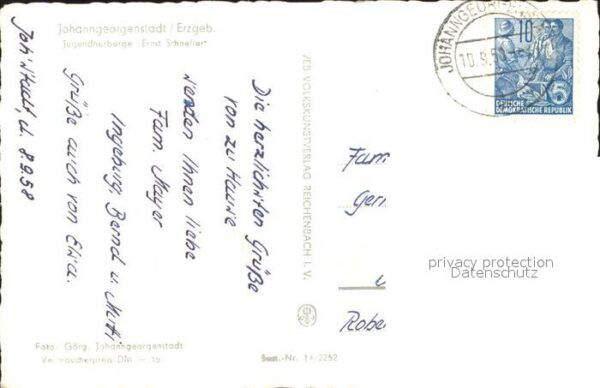 Johanngeorgenstadt / Erzgeb.
Jugendherberge "Ernst Schneller"
Joh'stadt, d. 8.9.58
Die herzlichsten Grüße
von zu Hause
senden Ihnen liebe
Fam. Mayer
Ingeburg, Bernd u. Mutti
Grüße auch von
VEB VOLKSKUNSTVERLAG REICHENBACH I. V.
Foto: Görg, Johanngeorgenstadt
Verbraucherpreis DM
Best.-Nr. 14/2252
JOHANNGEORGEN
10.9.58
10
5
DEUTSCHE
DEMOKRATISCHE REPUBLIK
Fam
Ger
Robe
privacy protection
Datenschutz